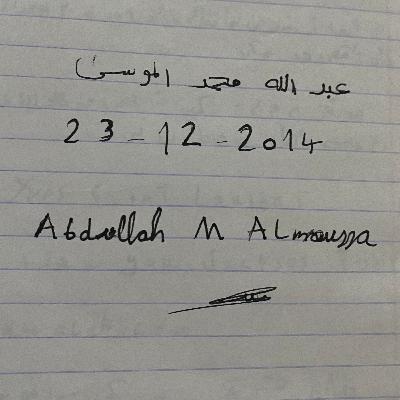 عبد الله محمد الموسى
23-12-2014
Abdullah M ALmoussa